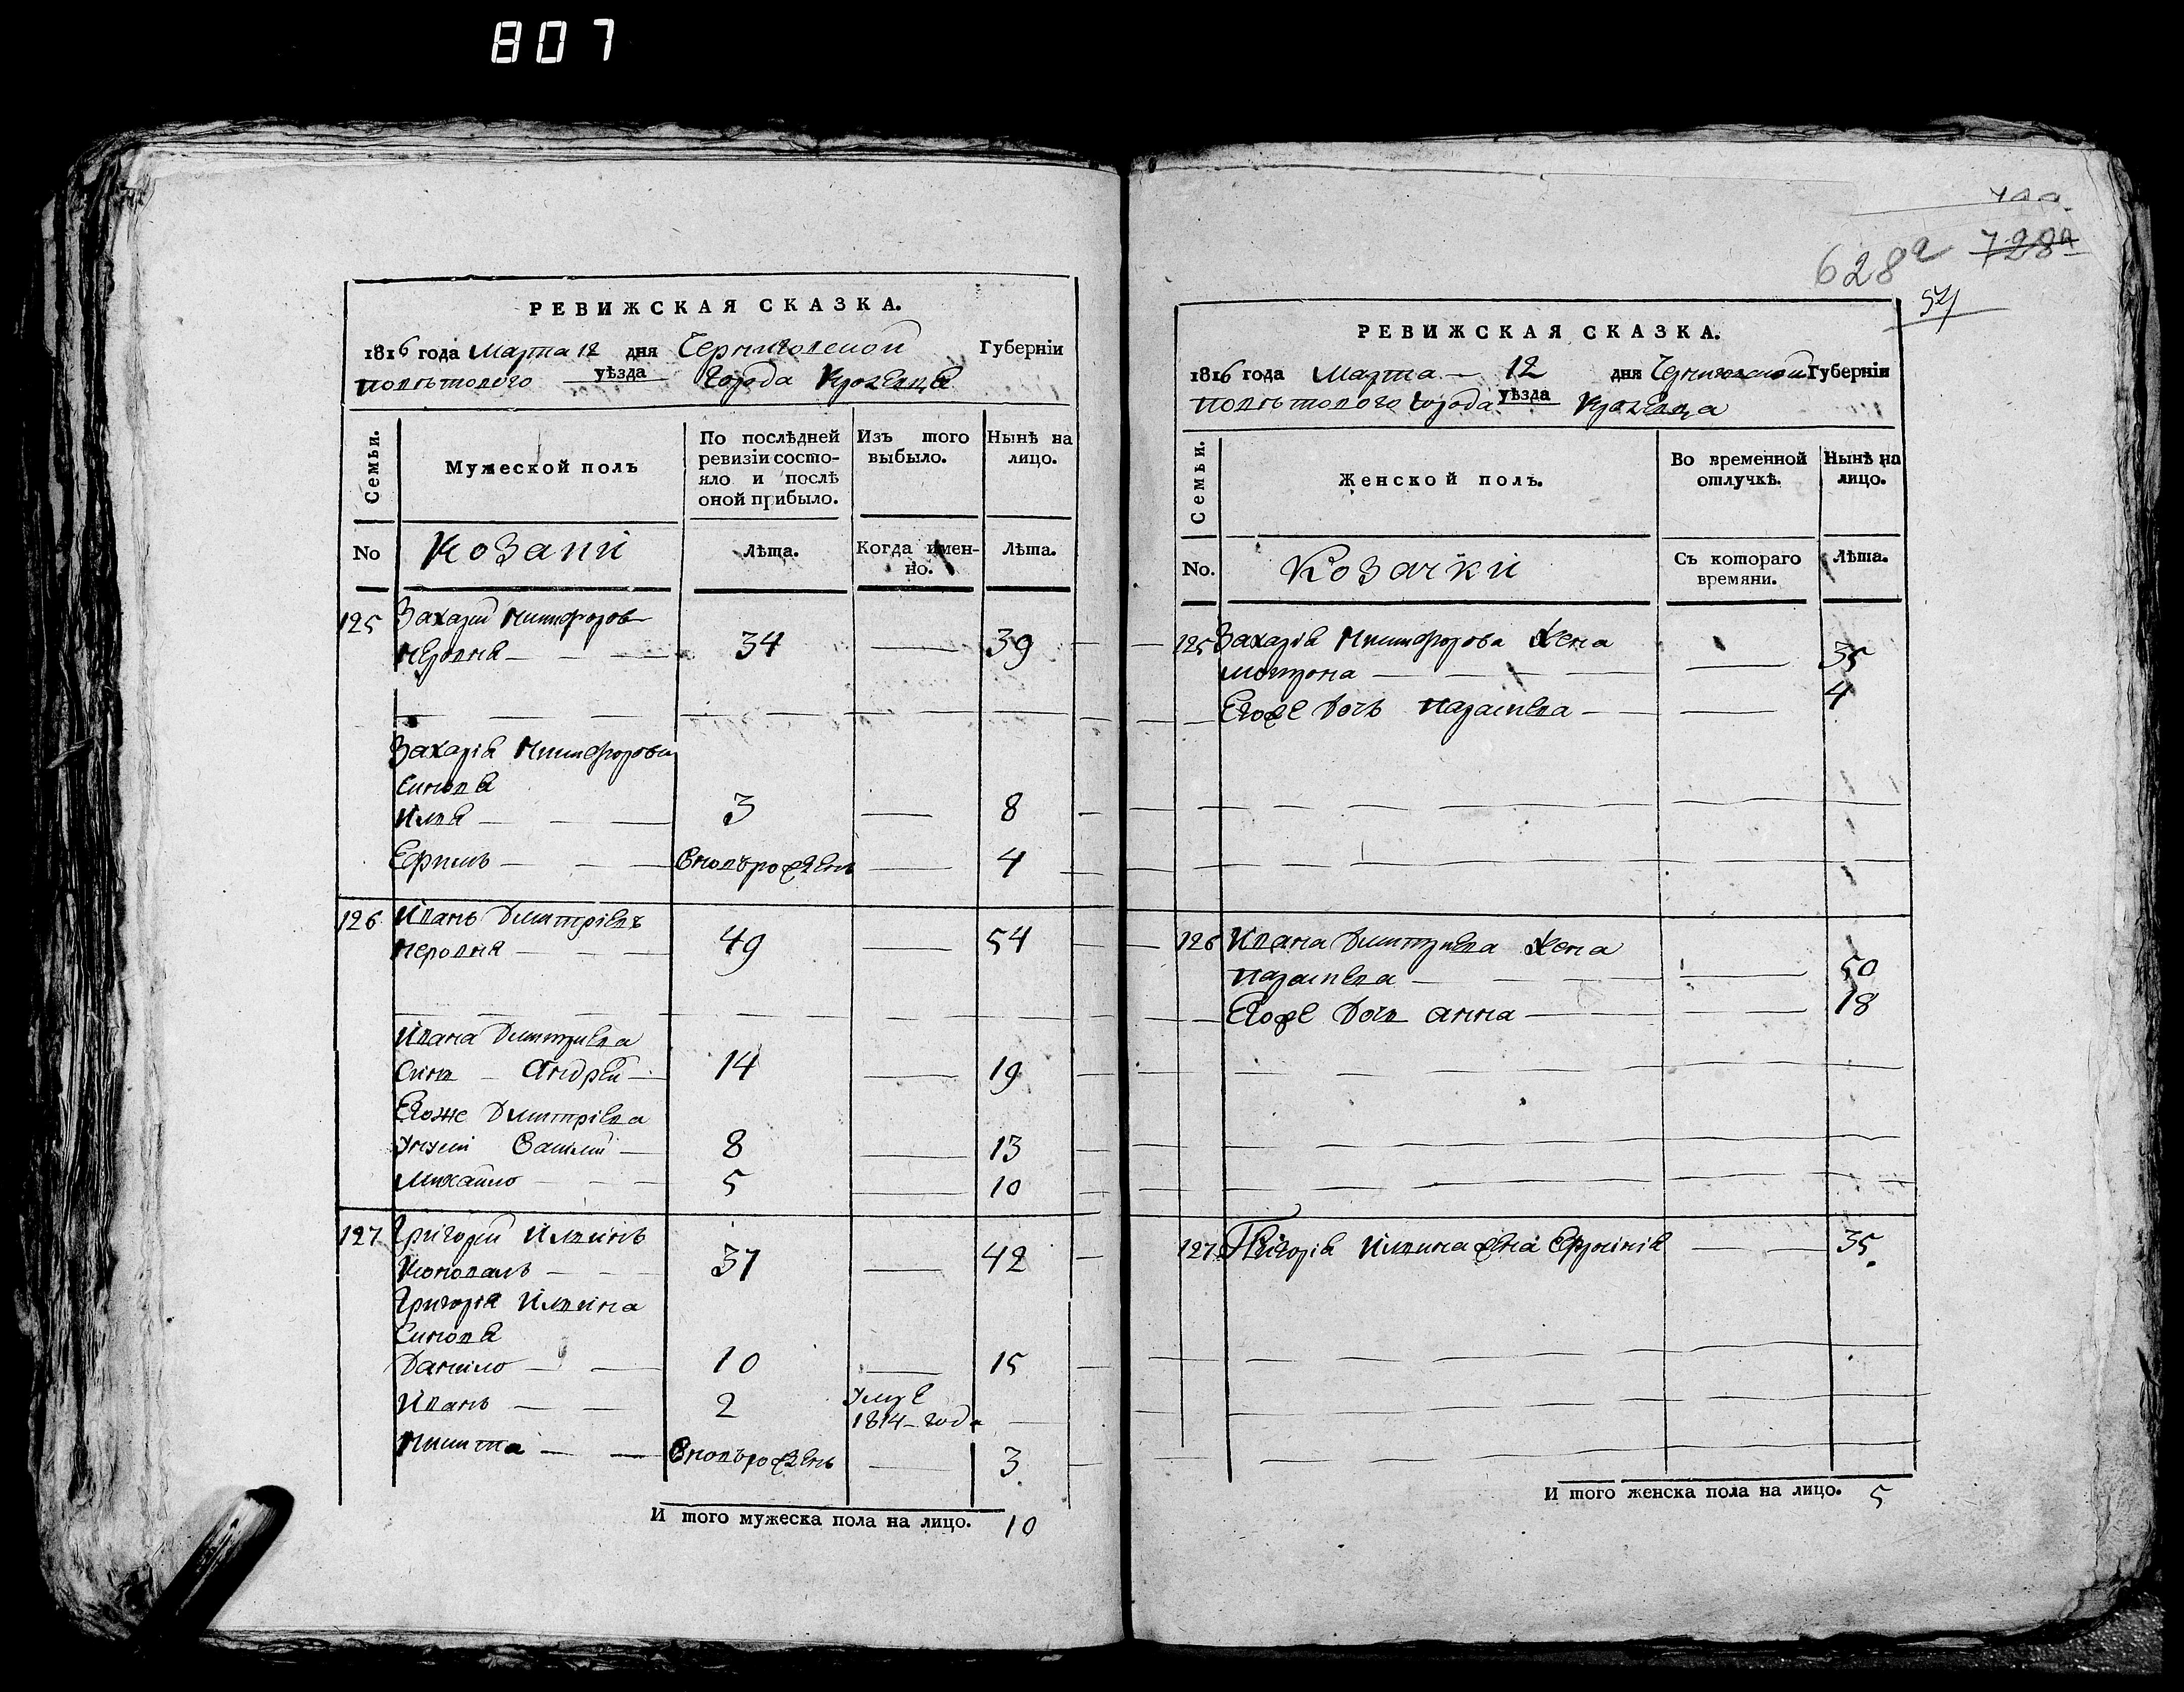 807
РЕВИЖСКАЯ СКАЗКА.
1816 года Марта 12 дня Черниговской Губерніи
поветового уѣзда города Кролевца
Семьи.
Мужеской полъ
По послѣдней ревизіи состояло и послѣ оной прибыло.
Изъ того выбыло.
Нынѣ на лицо.
No
Козаки
Лѣта.
Когда имен-
но.
Лѣта.
125 Захарий Никифоров
34 — 39
Захарія Никифорова
Синовя
Иля — 3 — 8
Ефимъ — вновърожденъ — 4
126 Иванъ Дмитріевъ
49 — 54
Ивана Дмитриева
Синъ — Андрей — 14 — 19
Егоже Дмитріева
Унуки Василий — 8 — 13
Михайло — 5 — 10
127 Григорий Ильинъ
Коновалъ — 37 — 42
Григорія Ильина
Синовя
Данило — 10 — 15
Иванъ — 2 умре
1814 года —
Никита — вновърожденъ — 3
И того мужеска пола на лицо. 10
628а 728а
РЕВИЖСКАЯ СКАЗКА.
1816 года Марта — 12 дня Черниговской Губерніи
поветового города уѣзда Кролевца
Семьи.
Женской полъ.
Во временной отлучкѣ.
Нынѣ на лицо.
No.
Козачки
Съ котораго времяни.
Лѣта.
125 Захарія Никифорова жена
Мотрона — 35
Егоже дочь Параскева — 4
126 Ивана Дмитриева жена
Параскева — 50
Егоже дочь Анна — 18
127 Григорія Ильина жена Ефросинія — 35
И того женска пола на лицо. 5